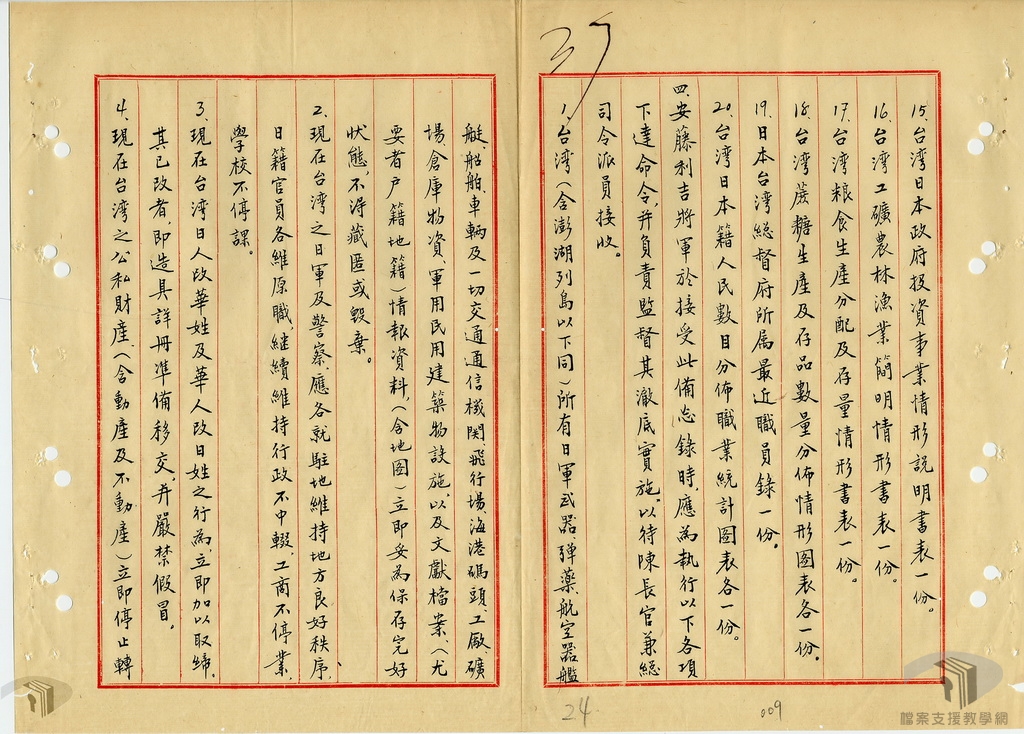 15.台湾日本政府投資事業情形説明書表一份。
16.台湾工礦農林漁業簡明情形書表一份。
17.台湾粮食生產分配及存量情形書表一份。
18.台湾蔗糖生產及存品數量分佈情形图表各一份。
19.日本台湾総督府所属最近職員錄一份。
20.台湾日本籍人民數目分佈職業統計图表各一份。
四.安藤利吉將軍於接受此備忘錄時,應為執行以下各項
下達命令,幷負責監督其澈底實施,以待陳長官兼總
司令派員接收。
1.台湾(含澎湖列島以下同)所有日軍武器.彈藥.航空器.艦
艇.船舶.車輛及一切交通通信機関.飛行場.海港.碼頭.工廠.礦
場.倉庫物資.軍用民用建築物設施,以及文獻檔案、(尤
要者戶籍地籍)情報資料,(含地图)立即妥為保存完好
狀態,不得藏匿或毀棄。
2.現在台湾之日軍及警察,應各就駐地維持地方良好秩序,
日籍官員各維原職,継續維持行政不中輟,工商不停業,
學校不停課。
3.現在台湾日人改華姓及華人改日姓之行為,立即加以取締.
其已改者,即造具詳冊準備移交,幷嚴禁假冒。
4.現在台湾之公私財產,(含動產及不動產)立即停止轉
24
009
檔案支援教學網